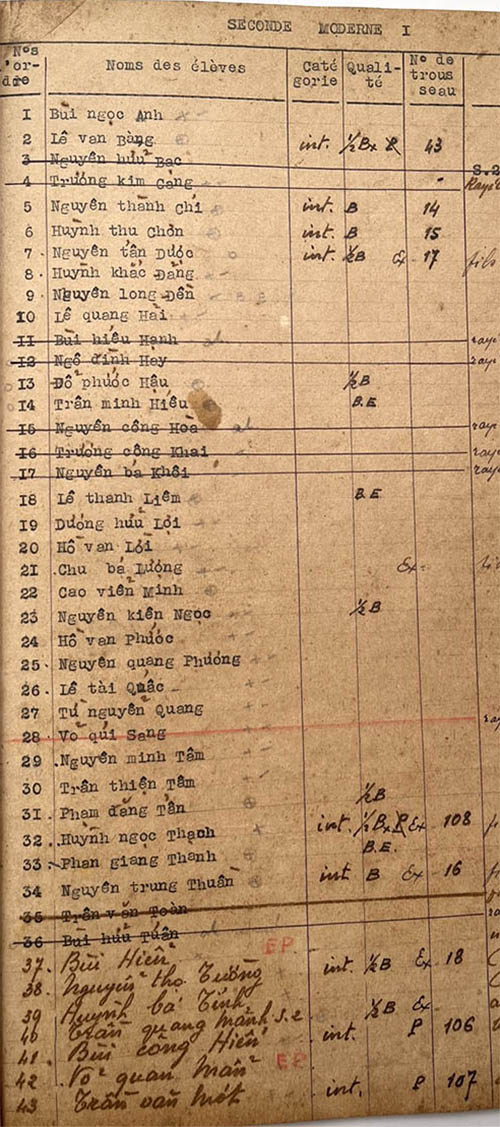 SECONDE MODERNE I
Nos d'or-dre Noms des élèves Caté gorie Quali-té No de trous seau
1 Bùi ngọc Anh
2 Lê van Bàng int. ½ Bx 43
3 Nguyễn hữu Bạc
4 Trương kim Càng
5 Nguyễn thành Chí int. B 14
6 Huỳnh thu Chơn int. B 15
7 Nguyễn tấn Dược int. ½B Ex 17 fils
8 Huỳnh khắc Đằng
9 Nguyễn long Đền
10 Lê quang Hải
11 Bùi hiếu Hạnh
12 Ngô đình Hay
13 Đỗ phước Hậu ½B
14 Trần minh Hiếu B.E
15 Nguyễn công Hoà
16 Trương công Khai
17 Nguyễn bá Khôi
18 Lê thanh Liêm B.E
19 Dương hữu Lợi
20 Hồ van Lợi
21 Chu bá Lượng Ex
22 Cao viễn Minh
23 Nguyễn kiên Ngọc ½B
24 Hồ van Phước
25 Nguyễn quang Phương
26 Lê tài Quắc
27 Từ nguyễn Quang
28 Võ qúi Sang
29 Nguyễn minh Tâm
30 Trần thiện Tâm
31 Phạm đăng Tân ½B
32 Huỳnh ngọc Thạch int. ½Bx P Ex 108
33 Phan giang Thanh B.E.
34 Nguyễn trung Thuần int B Ex 16
35 Trần văn Toàn
36 Bùi hữu Tuấn
37. Bùi Hiển EP
38. Nguyễn thọ Tường int. ½B Ex 18
39 Huỳnh bá Tính
40 Trần quang Mành S.2 ½B Ex
41. Bùi công Hiến int. P 106
42. Võ quan Mẫn EP
43 Trần văn Mót int. P 107